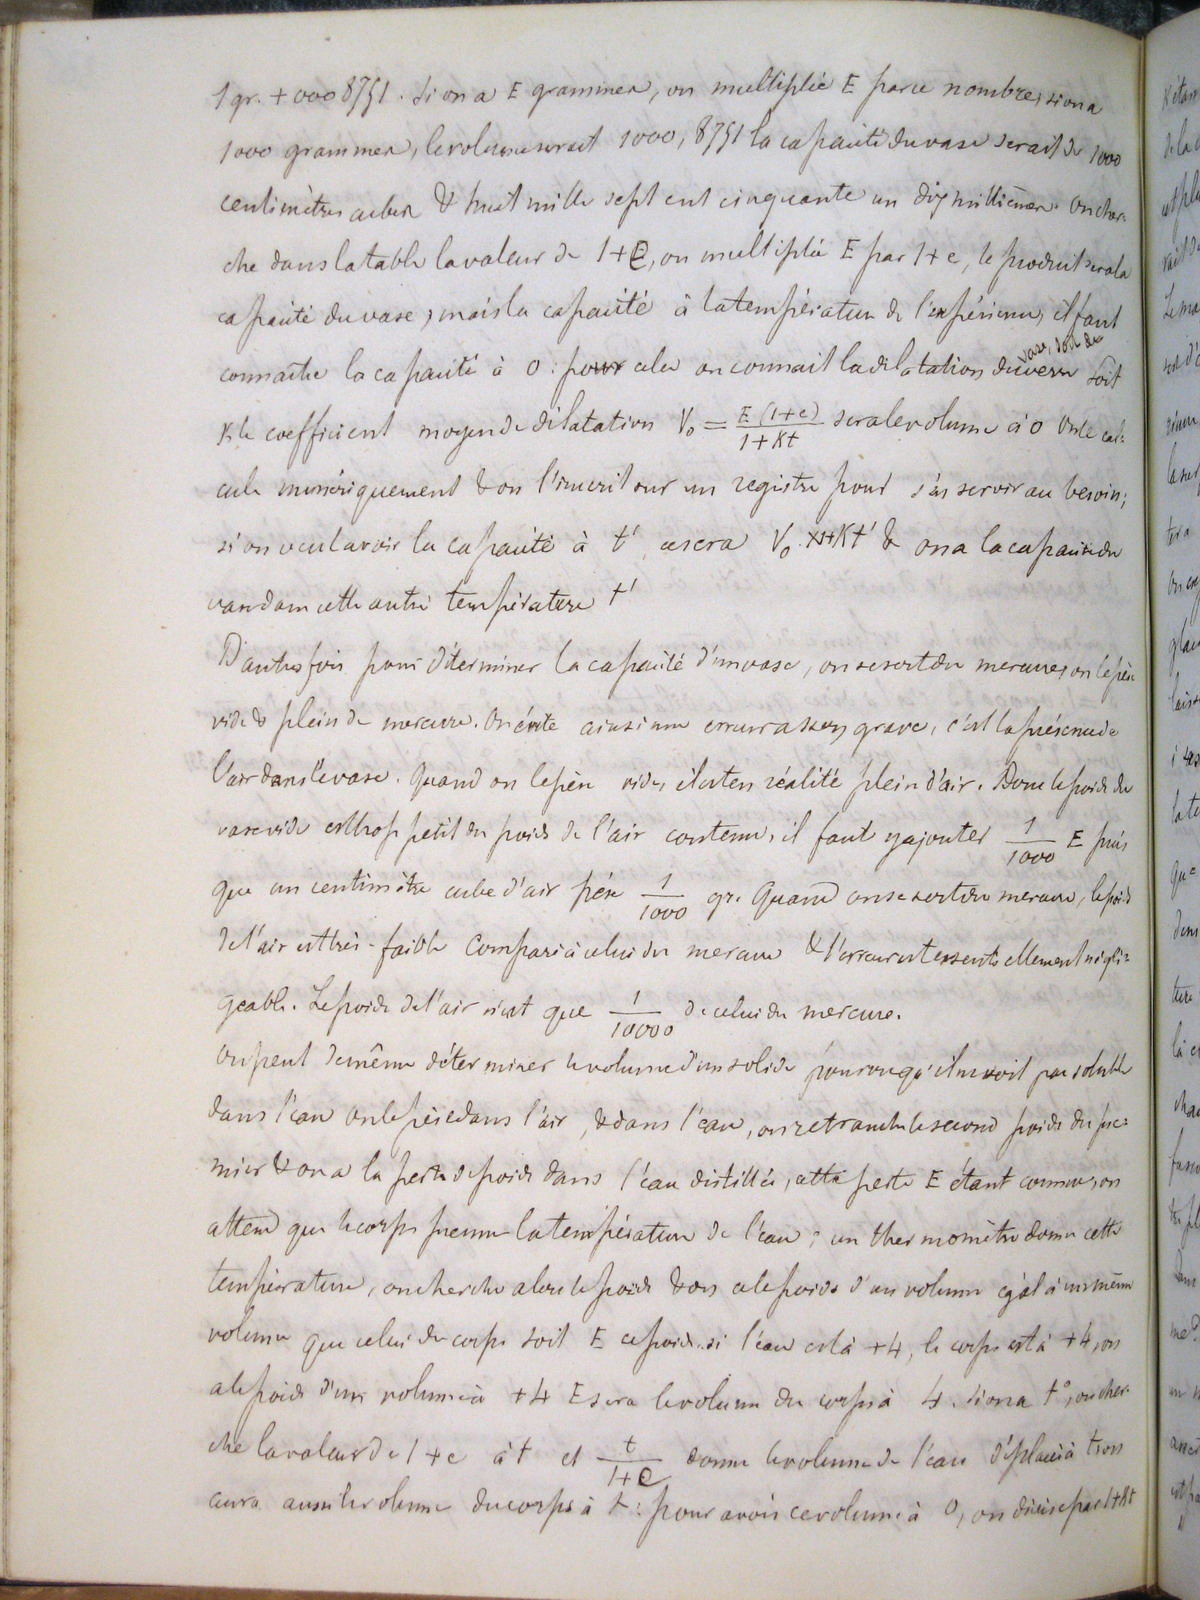 1 gr. + 000 8751. Si on a E grammes, on multiplie E par ce nombre, si on a
1000 grammes, le volume serait 1000, 8751 la capacité du vase serait de 1000
centimètres cubes & huit mille sept cent cinquante un dix millièmes. On cher-
che dans la table la valeur de 1+e, on multiplie E par 1+e, le produit sera la
capacité du vase, mais la capacité à la température de l'expérience, il faut
connaître la capacité à 0 : pour cela on connait la dilatation du verre soit
K le coefficient moyen de dilatation V₀ = E (1+e) / 1+Kt sera le volume à 0 On le cal-
cule numériquement & on l'inscrit sur un registre pour s'en servir au besoin;
si on veut avoir la capacité à t' ce sera V₀ × 1+Kt' & on a la capacité du
vase dans cette autre température t'
D'autres fois pour déterminer la capacité d'un vase, on se sert du mercure, on le pèse
vide & plein de mercure. On évite ainsi une erreur assez grave, c'est la présence de
l'air dans le vase. Quand on le pèse vide, il est en réalité plein d'air. Donc le poids du
vase vide est trop petit du poids de l'air contenu, il faut y ajouter 1/1000 E puis
que un centimètre cube d'air pèse 1/1000 gr. Quand on se sert du mercure, le poids
de l'air est très-faible comparé à celui du mercure & l'erreur est essentiellement négli-
geable. Le poids de l'air n'est que 1/10000 de celui du mercure.
On peut de même déterminer le volume d'un solide pourvu qu'il ne soit pas soluble
dans l'eau on le pèse dans l'air, & dans l'eau, on retranche le second poids du pre-
mier & on a la perte de poids dans l'eau distillée, cette perte E étant connue, on
attend que le corps prenne la température de l'eau ; un thermomètre donne cette
température, on cherche alors le poids & on a le poids d'un volume égal à un même
volume que celui du corps soit E ce poids. si l'eau est à +4, le corps est à +4, on
a le poids d'un volume à +4 E sera le volume du corps à 4. Si on a t°, on cher-
che la valeur de 1+e à t et t/1+e donne le volume de l'eau déplacée à t on
aura aussi le volume du corps à t : pour avoir ce volume à 0, on divise par 1+Kt